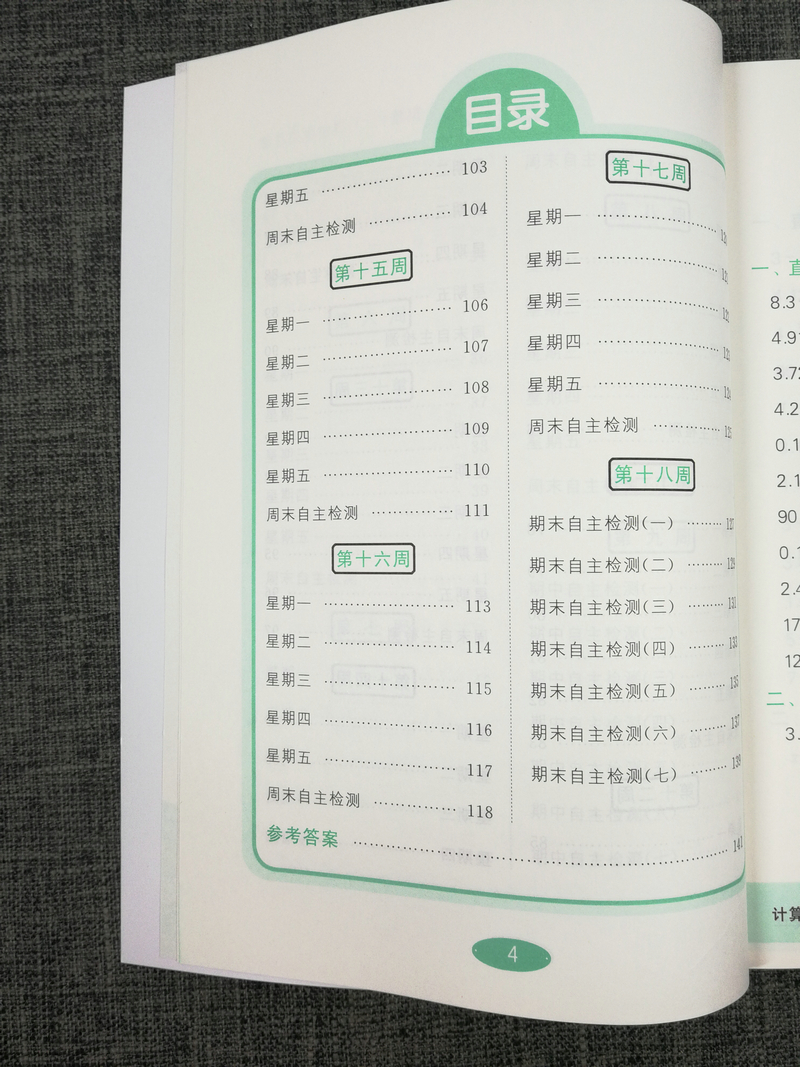 目录
星期五 103
周末自主检测 104
第十五周
星期一 106
星期二 107
星期三 108
星期四 109
星期五 110
周末自主检测 111
第十六周
星期一 113
星期二 114
星期三 115
星期四 116
星期五 117
周末自主检测 118
第十七周
星期一
星期二
星期三
星期四
星期五
周末自主检测 125
第十八周
期末自主检测(一) 127
期末自主检测(二) 129
期末自主检测(三) 131
期末自主检测(四) 133
期末自主检测(五) 135
期末自主检测(六) 137
期末自主检测(七) 139
参考答案 141
4
一、直
8.3
4.9
3.7
4.2
0.1
2.1
90
0.
2.4
17
12
二、
3.
计算